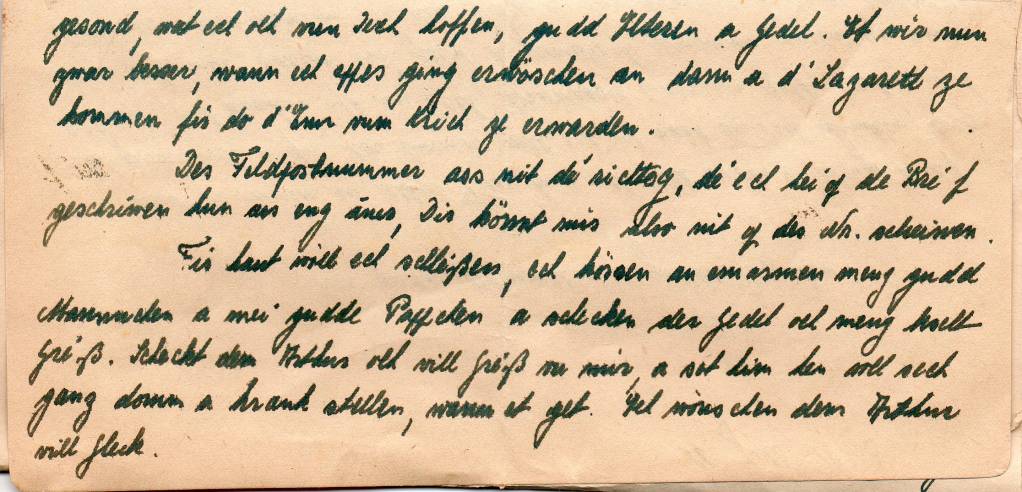 gesond, wat ech och vun Iech hoffen, gudd Elteren a Gedel. Et wir mun
zwar besser, wann ech eppes ging erwöschen an dann a d'Lazarett ze
kommen fir do d'Enn vum Krich ze erwarden.
Des Feldpostnummer ass nit dé richteg, dé ech hei op de Bréf
geschriwen hun ass eng áner, Dir könnt mir also nit op des Nr. schreiwen.
Fir haut wöll ech schleißen, ech kössen an emarmen meng gudd
Mammchen a mei gudde Pappchen a schecken der Gedel och meng best
Gréß. Scheckt dem Arthur och vill Gréß vu mir, a sot him hen soll sech
ganz domm a krank stellen, wann et get. Ech wönschen dem Arthur
vill Gleck.